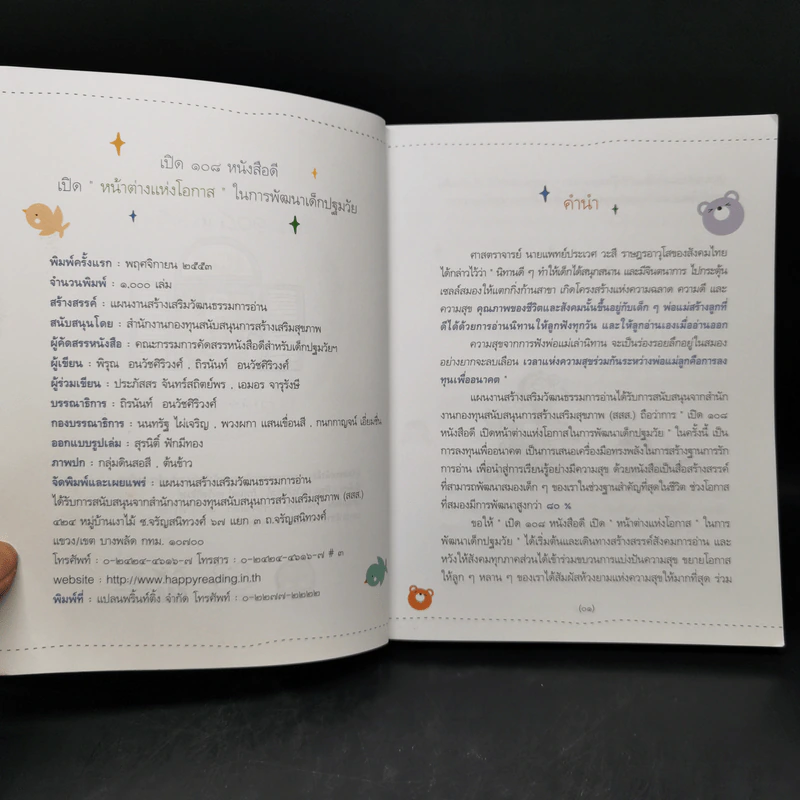 เปิด ๑๐๘ หนังสือดี
เปิด " หน้าต่างแห่งโอกาส " ในการพัฒนาเด็กปฐมวัย
พิมพ์ครั้งแรก : พฤศจิกายน ๒๕๕๓
จำนวนพิมพ์ : ๑,๐๐๐ เล่ม
สร้างสรรค์ : แผนงานสร้างเสริมวัฒนธรรมการอ่าน
สนับสนุนโดย : สำนักงานกองทุนสนับสนุนการสร้างเสริมสุขภาพ
ผู้คัดสรรหนังสือ : คณะกรรมการคัดสรรหนังสือดีสำหรับเด็กปฐมวัยฯ
ผู้เขียน : พิรุณ อนวัชศิริวงศ์ , ถิรนันท์ อนวัชศิริวงศ์
ผู้ร่วมเขียน : ประภัสสร จันทร์สถิตย์พร , เอมอร จารุรังษี
บรรณาธิการ : ถิรนันท์ อนวัชศิริวงศ์
กองบรรณาธิการ : นนทรัฐ ไผ่เจริญ , พวงผกา แสนเขื่อนสี , กนกกาญจน์ เอี่ยมชื่น
ออกแบบรูปเล่ม : สุรนิติ์ ฟักมีทอง
ภาพปก : กลุ่มดินสอสี , ต้นข้าว
จัดพิมพ์และเผยแพร่ : แผนงานสร้างเสริมวัฒนธรรมการอ่าน
ได้รับการสนับสนุนจากสำนักงานกองทุนสนับสนุนการสร้างเสริมสุขภาพ (สสส.)
๔๒๔ หมู่บ้านเงาไม้ ซ.จรัญสนิทวงศ์ ๖๗ แยก ๓ ถ.จรัญสนิทวงศ์
แขวง/เขต บางพลัด กทม. ๑๐๗๐๐
โทรศัพท์ : ๐-๒๔๒๔-๔๖๑๖-๗ โทรสาร : ๐-๒๔๒๔-๔๖๑๖-๗ # ๓
website : http://www.happyreading.in.th
พิมพ์ที่ : แปลนพริ้นท์ติ้ง จำกัด โทรศัพท์ : ๐-๒๒๗๗-๒๒๒๒
คำนำ
ศาสตราจารย์ นายแพทย์ประเวศ วะสี ราษฎรอาวุโสของสังคมไทย
ได้กล่าวไว้ว่า " นิทานดี ๆ ทำให้เด็กได้สนุกสนาน และมีจินตนาการ ไปกระตุ้น
เซลล์สมองให้แตกกิ่งก้านสาขา เกิดโครงสร้างแห่งความฉลาด ความดี และ
ความสุข คุณภาพของชีวิตและสังคมนั้นขึ้นอยู่กับเด็ก ๆ พ่อแม่สร้างลูกที่
ดีได้ด้วยการอ่านนิทานให้ลูกฟังทุกวัน และให้ลูกอ่านเองเมื่ออ่านออก
ความสุขจากการฟังพ่อแม่เล่านิทาน จะเป็นร่องรอยลึกอยู่ในสมอง
อย่างยากจะลบเลือน เวลาแห่งความสุขร่วมกันระหว่างพ่อแม่ลูกคือการลง
ทุนเพื่ออนาคต "
แผนงานสร้างเสริมวัฒนธรรมการอ่านได้รับการสนับสนุนจากสำนัก
งานกองทุนสนับสนุนการสร้างเสริมสุขภาพ (สสส.) ถือว่าการ " เปิด ๑๐๘
หนังสือดี เปิดหน้าต่างแห่งโอกาสในการพัฒนาเด็กปฐมวัย " ในครั้งนี้ เป็น
การลงทุนเพื่ออนาคต เป็นการเสนอเครื่องมือทรงพลังในการสร้างฐานการรัก
การอ่าน เพื่อนำสู่การเรียนรู้อย่างมีความสุข ด้วยหนังสือเป็นสื่อสร้างสรรค์
ที่สามารถพัฒนาสมองเด็ก ๆ ของเราในช่วงฐานสำคัญที่สุดในชีวิต ช่วงโอกาส
ที่สมองมีการพัฒนาสูงกว่า ๘๐ %
ขอให้ " เปิด ๑๐๘ หนังสือดี เปิด " หน้าต่างแห่งโอกาส " ในการ
พัฒนาเด็กปฐมวัย " ได้เริ่มต้นและเดินทางสร้างสรรค์สังคมการอ่าน และ
หวังให้สังคมทุกภาคส่วนได้เข้าร่วมขบวนการแบ่งปันความสุข ขยายโอกาส
ให้ลูก ๆ หลาน ๆ ของเราได้สัมผัสห้วงยามแห่งความสุขให้มากที่สุด ร่วม
(๐๑)